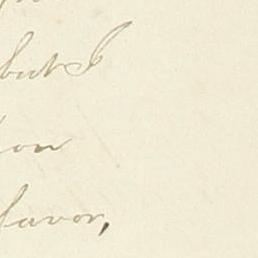 but I
on
favor,